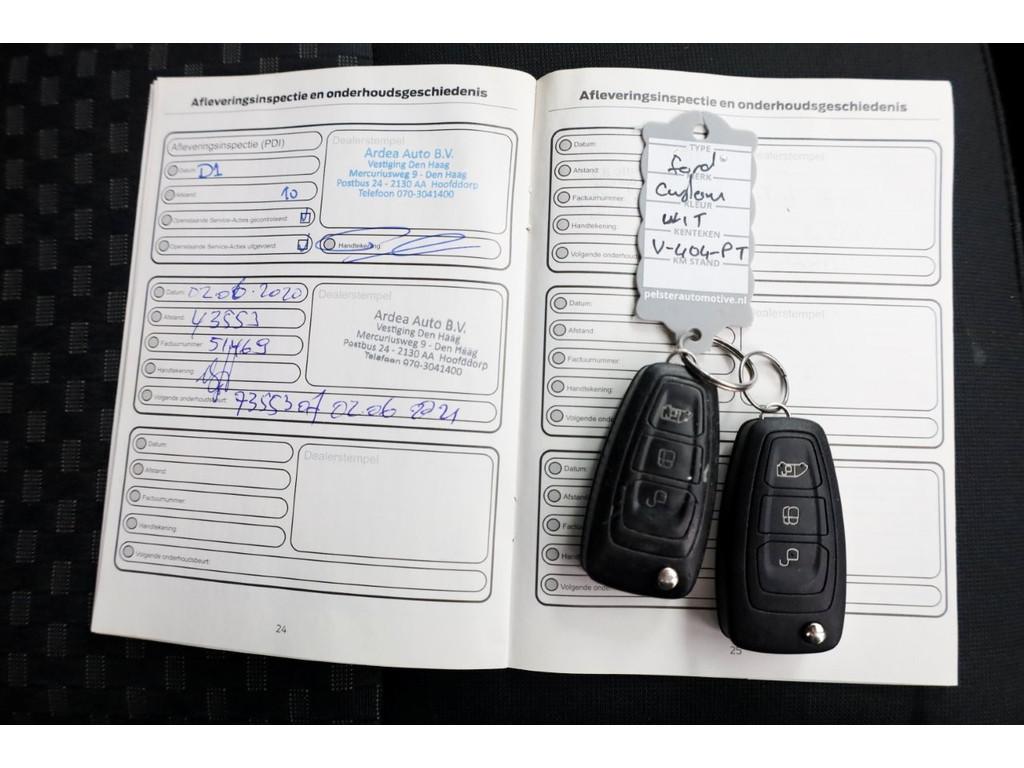 Afleveringsinspectie en onderhoudsgeschiedenis
Afleveringsinspectie (PDI)
Datum: D1
Afstand: 10
Openstaande Service-Acties gecontroleerd:
Openstaande Service-Acties uitgevoerd:
Dealerstempel
Ardea Auto B.V.
Vestiging Den Haag
Mercuriusweg 9 - Den Haag
Postbus 24 - 2130 AA Hoofddorp
Telefoon 070-3041400
Handtekening:
Datum: 02.06.2020
Afstand: 43553
Factuurnummer: 51469
Handtekening:
Volgende onderhoudsbeurt: 73553 of 02.06 2021
Dealerstempel
Ardea Auto B.V.
Vestiging Den Haag
Mercuriusweg 9 - Den Haag
Postbus 24 - 2130 AA Hoofddorp
Telefoon 070-3041400
Datum:
Afstand:
Factuurnummer:
Handtekening:
Volgende onderhoudsbeurt:
Dealerstempel
24
Afleveringsinspectie en onderhoudsgeschiedenis
Datum:
Afstand:
Factuurnummer:
Handtekening:
Volgende onderhoud
ealerstempel
Datum:
Afstand:
Factuurnummer:
Handtekening:
Volgende onderho
Dealerstempel
Datum:
Afstand
Factuu
Handt
Volgende onde
25
TYPE
Ford
MERK
Custom
KLEUR
WIT
KENTEKEN
V-404-PT
KM STAND
pelsterautomotive.nl